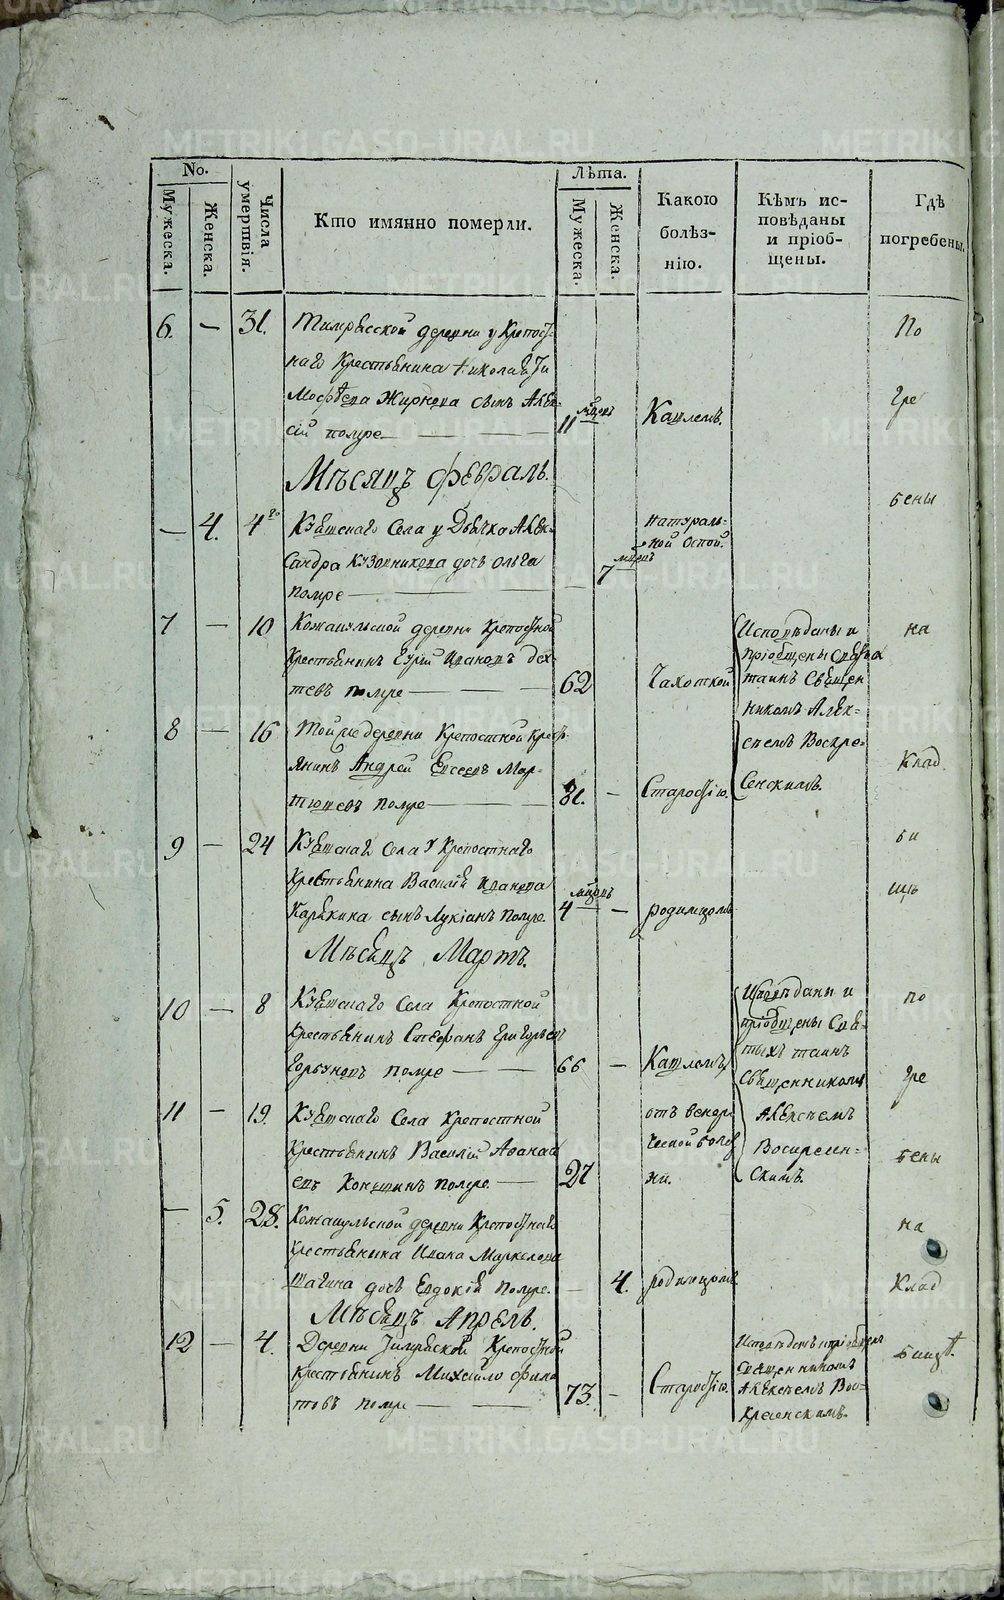 METRIKI.GASO-URAL.RU
No.
Мужеска.
Женска.
Числа умертвія.
Кто имянно померли.
Лѣта.
Мужеска.
Женска.
Какою болѣз-
нію.
Кѣмъ ис-
повѣданы
и пріоб-
щены.
Гдѣ
погребены.
6. — 31.
деревни у Крепост-
наго Крестьянина Николая Ти
мофѣева сынъ Алек-
сій помре
11 мцовъ
Кашлемъ.
По
гре
бены
Мѣсяцъ Февраль.
— 4. 4го
Села у Дьячка Алек-
сандра дочь Ольга
помре
7 мцовъ
натураль-
ной оспой.
7 — 10
деревни Крепостной
Крестьянинъ Ивановъ Дех-
тевъ помре
62
Чахоткой
Исповѣданы и
пріобщены Святых
таинъ Священ
никомъ Алек-
сѣемъ Воскре-
сенскимъ.
на
8 — 16
Той же деревни Крепостной крест-
янинъ Андрей Евсеевъ Мар-
тюшевъ помре
81. —
Старостію.
Клад
9 — 24
Села у Крепостнаго
Крестьянина Василія Иванова
Карякина сынъ Лукіанъ помре
4 мцовъ —
родимцомъ
би
щѣ
Мѣсяцъ Мартъ.
10 — 8
Села Крепостной
Крестьянинъ Стефанъ Григорьевъ
Горбуновъ помре
66 —
Кашлемъ
Исповѣданы и
пріобщены Свя-
тыхъ таинъ
Священникомъ
Алексѣемъ
Воскресен-
скимъ.
по
гре
11 — 19.
Села Крепостной
Крестьянинъ Василій Афанась
евъ Коншинъ помре
27
отъ венери
ческой болѣз
ни.
бены
— 5. 28.
деревни Крепостнаго
Крестьянина Ивана Маркелова
Шагина дочь Евдокія помре
— 4.
родимцомъ
на
Клад
Мѣсяцъ Апрель.
12 — 4.
Деревни Крепостной
Крестьянинъ Михайло Фила
товъ помре
73. —
Старостію.
Священникомъ
Алексѣемъ Вос-
кресенскимъ.
бищѣ.